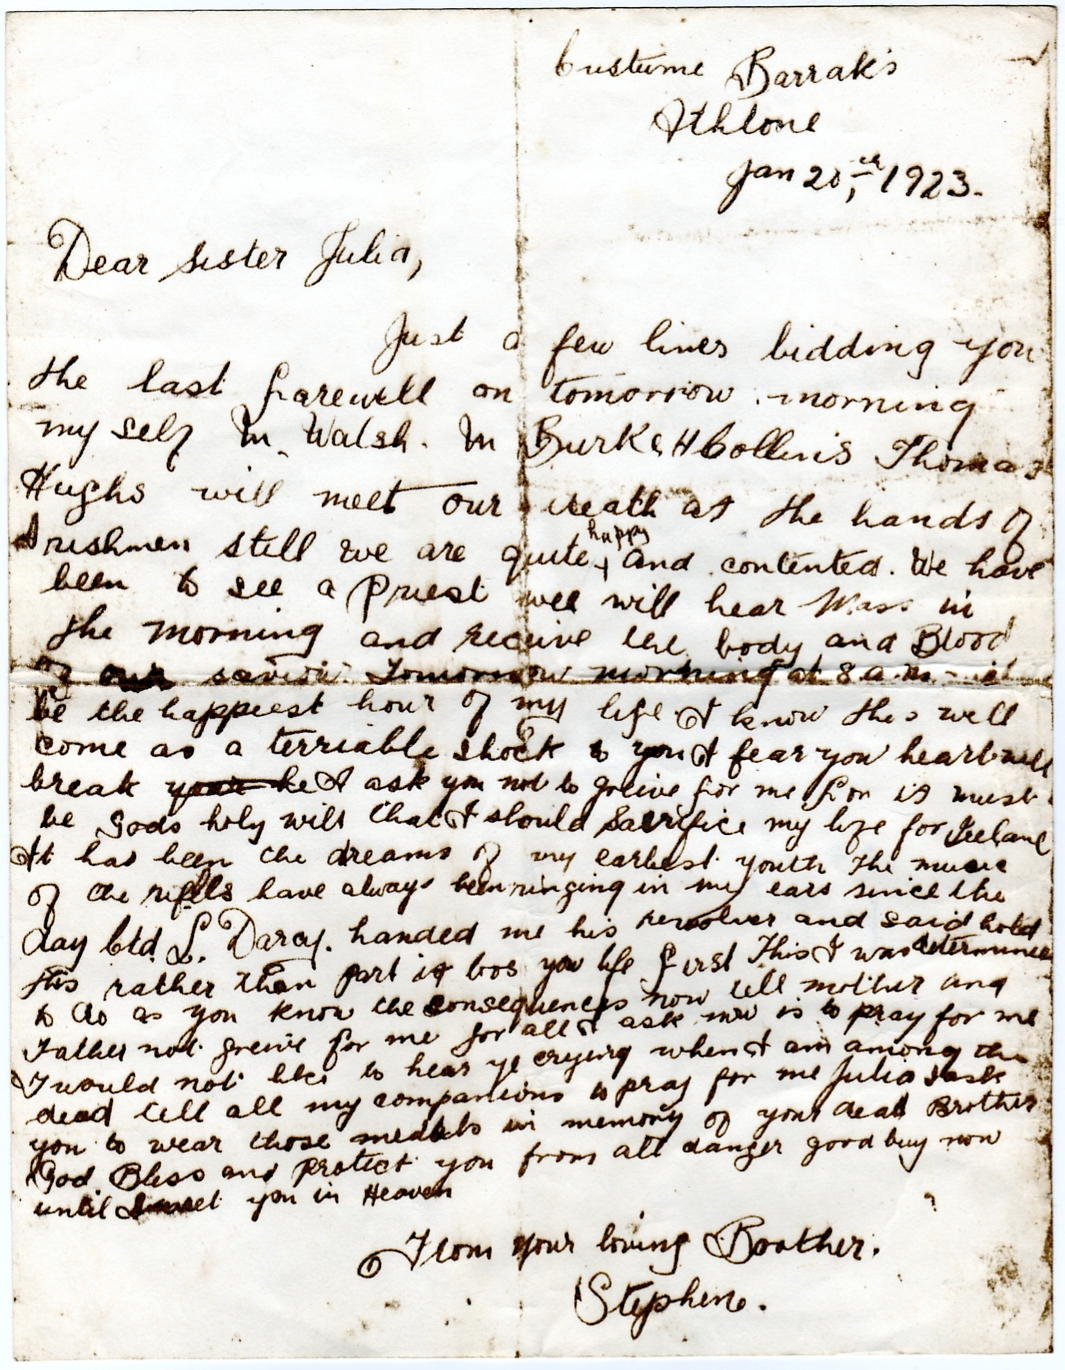 Custume Barraks
Athlone
Jan 20th, 1923.
Dear sister Julia,
Just a few lines bidding you
the last farewell on tomorrow morning
my self M. Walsh. M Burke H Collins Thomas
Hughs will meet our death at the hands of
Irishmen still we are quite happy and contented. We have
been to see a Priest wee will hear Mass in
the morning and receive the body and Blood
of our saviour. Tomorrow morning at 8 a.m. will
be the happiest hour of my life I know this will
come as a terriable shock to you I fear you heart will
break your he I ask you not to greive for me for it must
be Gods holy will that I should Sacrifice my life for Ireland
It has been the dreams of my earliest youth the music
of the rifles have always been ringing in my ears since the
day Ctd. L. Darcy. handed me his revolver and said hold
this rather than part it loos you life first This I was determined
to do as you know the consequences now tell mother and
Father not greive for me for all I ask now is to pray for me
I would not like to hear ye crying when I am among the
dead tell all my companions to pray for me Julia I ask
you to wear those medals in memory of your dead Brother
God Bless and protect you from all danger good buy now
until I meet you in Heaven
From your loving Brother.
Stephen.